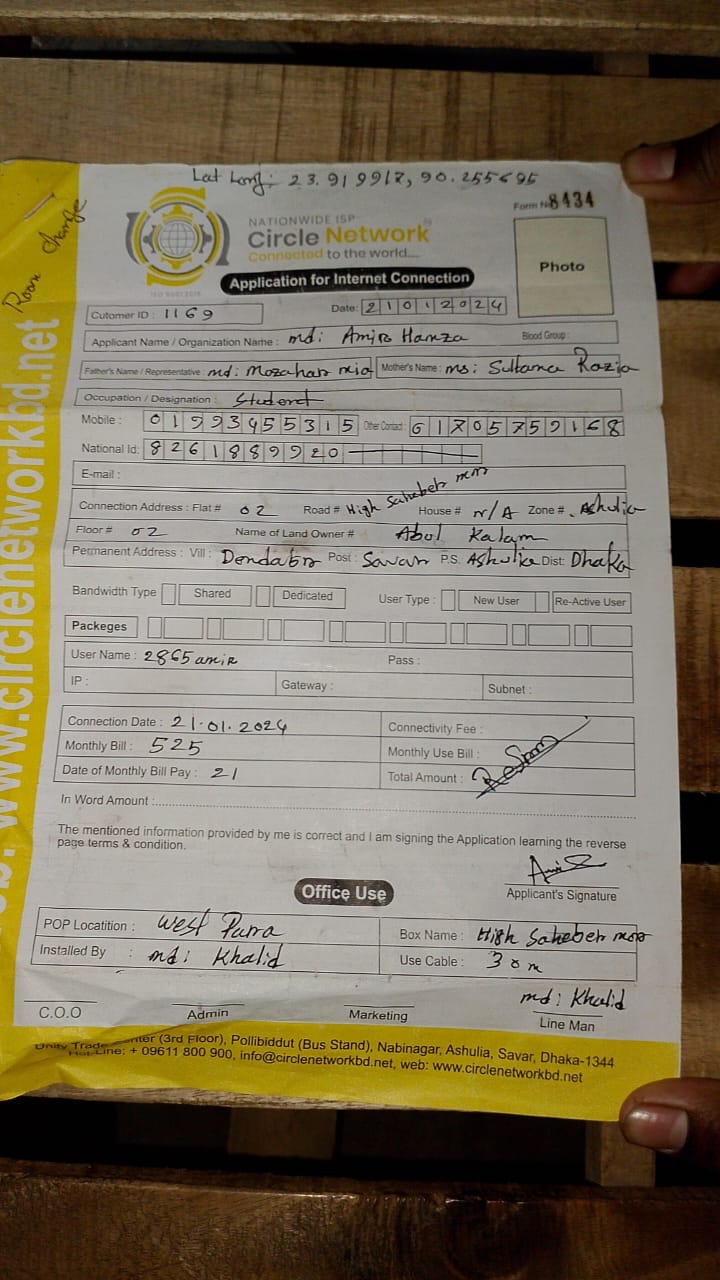 Lat Long: 23.919917, 90.255695
Room Change
Form № 8434
NATIONWIDE ISP
Circle Network
Connected to the world....
ISO 9001:2015
Photo
Application for Internet Connection
Cutomer ID : 1169
Date: 21012024
Applicant Name / Organization Name : md: Amir Hamza
Blood Group :
Father's Name / Representative : md: Mozahar mia Mother's Name : ms: Sultana Razia
Occupation / Designation : Student
Mobile : 01993455315 Other Contact : 01705759168
National Id: 8261889920
E-mail :
Connection Address : Flat # 02 Road # High Saheber mor House # N/A Zone # Ashulia
Floor # 02 Name of Land Owner # Abul Kalam
Permanent Address : Vill : Dendabor Post : Savar P.S. Ashulia Dist: Dhaka
Bandwidth Type Shared Dedicated User Type : New User Re-Active User
Packeges
User Name : 2865amir Pass :
IP : Gateway : Subnet :
Connection Date : 21.01.2024 Connectivity Fee :
Monthly Bill : 525 Monthly Use Bill :
Date of Monthly Bill Pay : 21 Total Amount :
In Word Amount :
The mentioned information provided by me is correct and I am signing the Application learning the reverse
page terms & condition.
Applicant's Signature
Office Use
POP Locatition : West Parra Box Name : High Saheber mor
Installed By : md: Khalid Use Cable : 30m
md: Khalid
C.O.O Admin Marketing Line Man
Unity Trade Center (3rd Floor), Pollibiddut (Bus Stand), Nabinagar, Ashulia, Savar, Dhaka-1344
Hot-Line: + 09611 800 900, info@circlenetworkbd.net, web: www.circlenetworkbd.net
www.circlenetworkbd.net